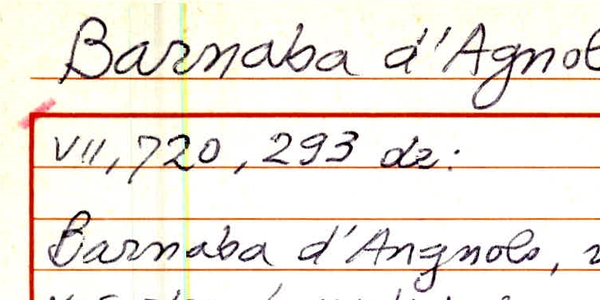 Barnaba d'Agnol
VII, 720, 293 dz:
Barnaba d'Angnolo,